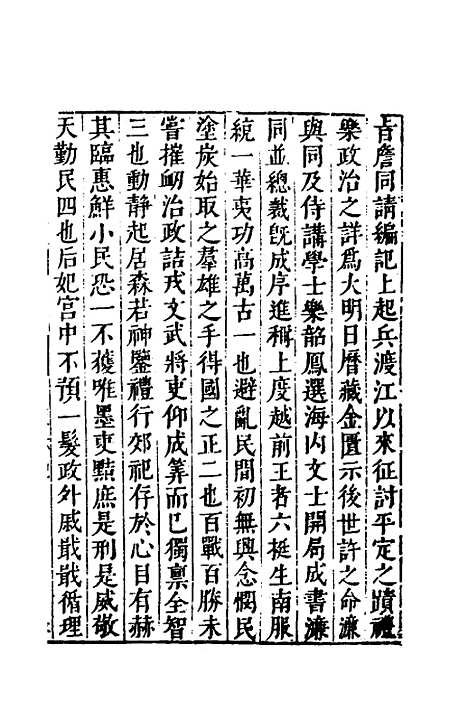 旨詹同請編記上起兵渡江以來征討平定之蹟禮
樂政治之詳爲大明日曆藏金匱示後世許之命濂
與同及侍講學士樂韶鳳選海内文士開局成書濂
同並總裁旣成序進稱上度越前王者六挺生南服
統一華夷功高萬古一也避亂民間初無與念憫民
塗炭始取之羣雄之手得國之正二也百戰百勝未
嘗摧衂治政詰戎文武將吏仰成筭而已獨禀全智
三也動靜起居森若神鑒禮行郊祀存於心目有赫
其臨惠鮮小民恐一不獲唯墨吏黠庶是刑是威敬
天勤民四也后妃宫中不預一髮政外戚戢戢循理